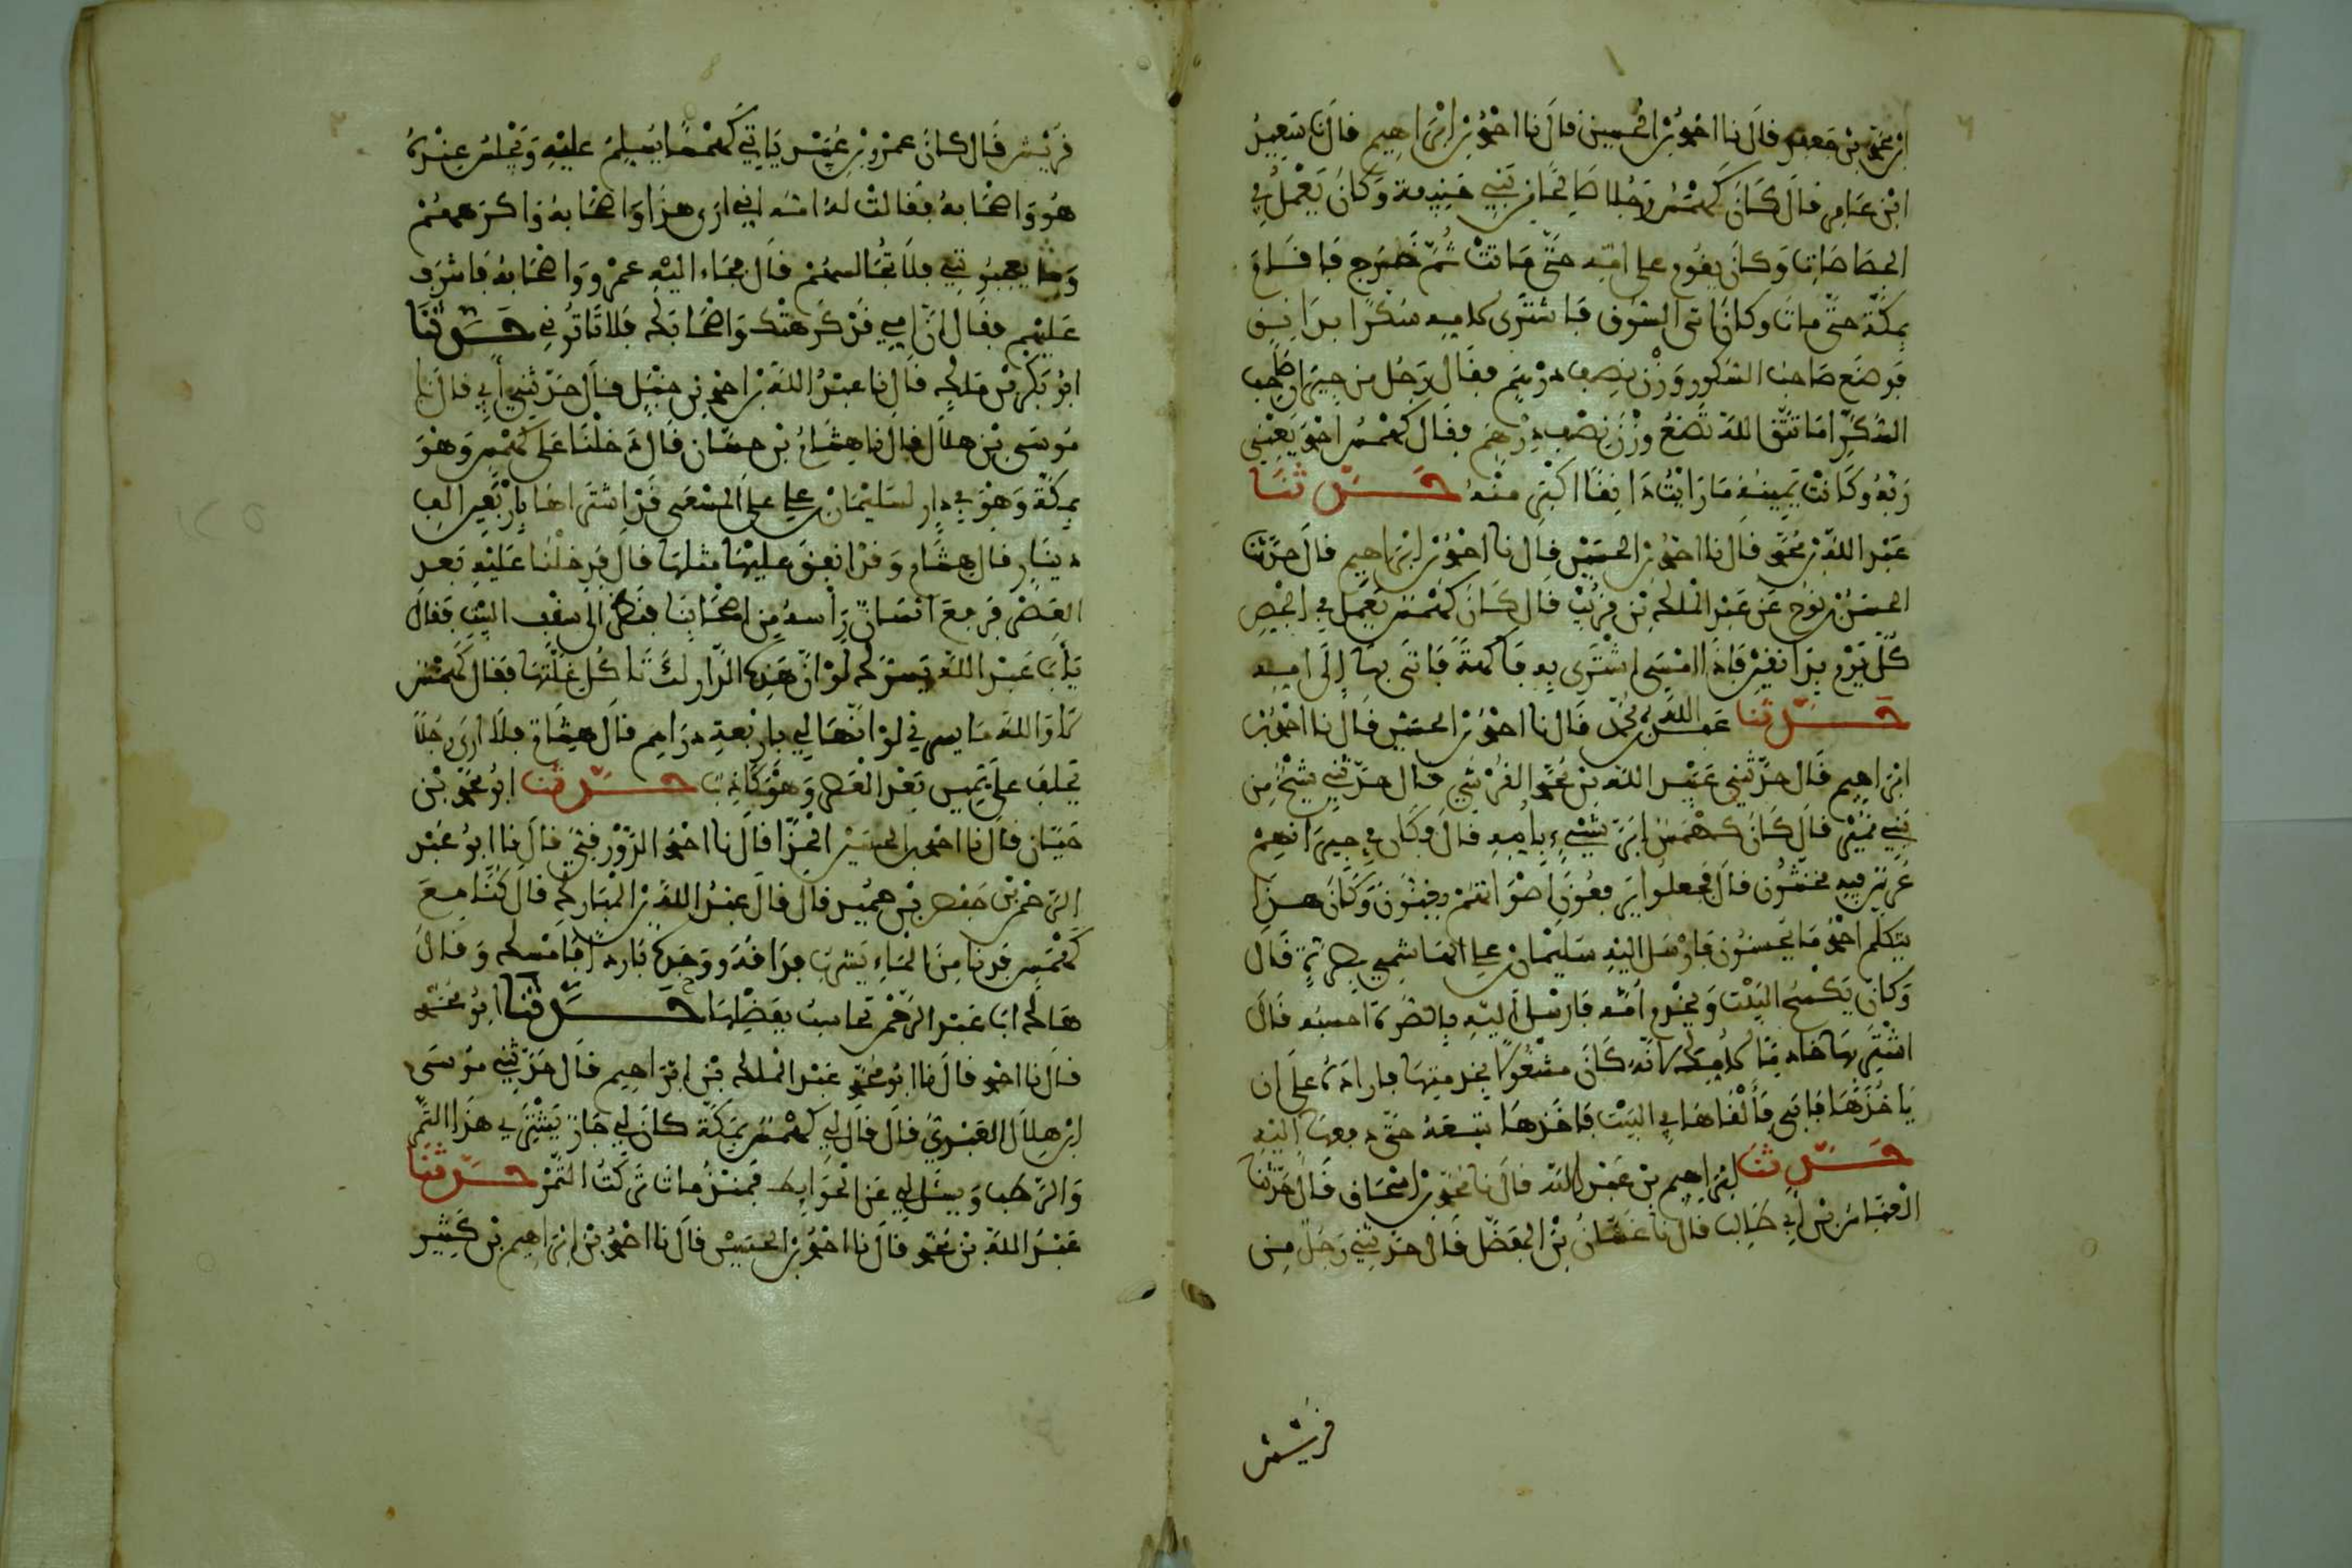 ابن محمد بن جعفر قال نا احمد بن الحسين قال نا احمد بن ابراهيم قال نا سعيد
ابن عامر قال كان كهمس رجلا صالحا من بني حنيفة وكان يعمل في
الجصاصات وكان يقوم على امه حتى ماتت ثم خرج فاقام
بمكة حتى مات وكان ياتي السوق فاشترى لامه سكرا بدانق
فوضع صاحب السكر وزن نصف درهم فقال رجل من جيران صاحب
السكر اما تتق الله تضع وزن نصف درهم فقال كهمس احمد يعني
ربه وكانت يمينه ما رايت دانقا اكبر منه حدثنا
عبد الله بن محمد قال نا احمد بن الحسين قال نا احمد بن ابراهيم قال حدثنا
الحسن بن نوح عن عبد الملك بن قريب قال كان كهمس يعمل في الجص
كل يوم بدانقين فاذا امسى اشترى به فاكهة فاتى بها إلى امه
حدثنا عبد الله بن محمد قال نا احمد بن الحسين قال نا احمد بن
ابراهيم قال حدثني عبيد الله بن محمد القرشي قال حدثني شيخ من
بني قال كان كهمس ابر شيء بامه قال وكان في جيرانهم
عريش فيه مخنثون قال فجعلوا يرفعون اصواتهم ويغنون وكان هذا
يتكلم احمد ما يحسنون فارسل اليه سليمان بن علي الهاشمي بصرة قال
وكان يكسح البيت ويخدم أمه فارسل اليه بالصرة احسبه قال
اشتر بها خادما لامك لانه كان مشغولا بخدمتها فاراده على ان
ياخذها فابى فألقاها في البيت فاخذها يتبعه حتى دفعها اليه
حدثنا ابراهيم بن عبد الله قال نا محمد بن اسحاق قال حدثنا
العباس بن ابي طالب قال نا غسان بن المفضل قال حدثني رجل من
قريش
قريش قال كان عمرو بن عبيد ياتي كهمسا يسلم عليه ويجلس عنده
هو واصحابه فقالت له امه اني ارى هذا واصحابه واكرههم
وما يعجبوني فلا تجالسهم قال فجاء اليه عمرو واصحابه فاشرف
عليهم فقال ان امي قد كرهتك واصحابك فلا تاتوني حدثنا
ابو بكر بن مالك قال نا عبد الله بن احمد بن حنبل قال حدثني أبي قال نا
موسى بن هلال قال نا هشام بن حسان قال دخلنا على كهمس وهو
بمكة وهو في دار لسليمان بن علي على المسعى قد اشتراها باربعين الف
دينار قال هشام وقد انفق عليها مثلها قال فدخلنا عليه بعد
العصر فرفع انسان رأسه من اصحابنا فنظر الى سقف البيت فقال
يا أبا عبد الله يسرك لو ان هذه الدار لك تاكل غلتها فقال كهمس
لا والله ما يسرني لو انها لي باربعة دراهم قال هشام فلا ارى رجلا
يحلف على يمين بعد العصر وهو كاذب حدثنا ابو محمد بن
حيان قال نا احمد بن الحسين الحذا قال نا احمد الدورقي قال نا ابو عبد
الرحمن بن جعفر بن حميد قال قال عبد الله بن المبارك قال كنا مع
كهمس فدنا من الماء يشرب فذاقه ووجده باردا فامسك وقال
هاك ابا عبد الرحمن تحاسب بفضلها حدثنا ابو محمد
قال نا احمد قال نا ابو محمد عبد الملك بن ابراهيم قال حدثني موسى
ابن هلال العبدي قال قال لي كهمس بمكة كان لي جار يشتري هذا التمر
والرطب ويسل لي عن الحوايط فمنذ مات تركت التمر حدثنا
عبد الله بن محمد قال نا احمد بن الحسين قال نا احمد بن ابراهيم بن كثير